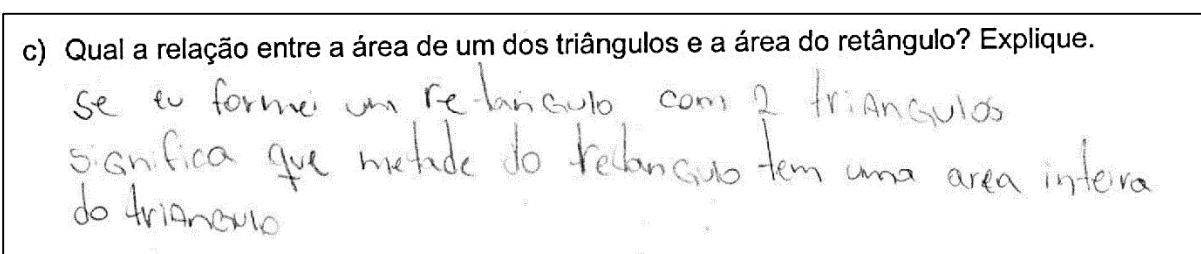 c) Qual a relação entre a área de um dos triângulos e a área do retângulo? Explique.
se eu formei um retângulo com 2 triangulos
significa que metade do retangulo tem uma area inteira
do triangulo